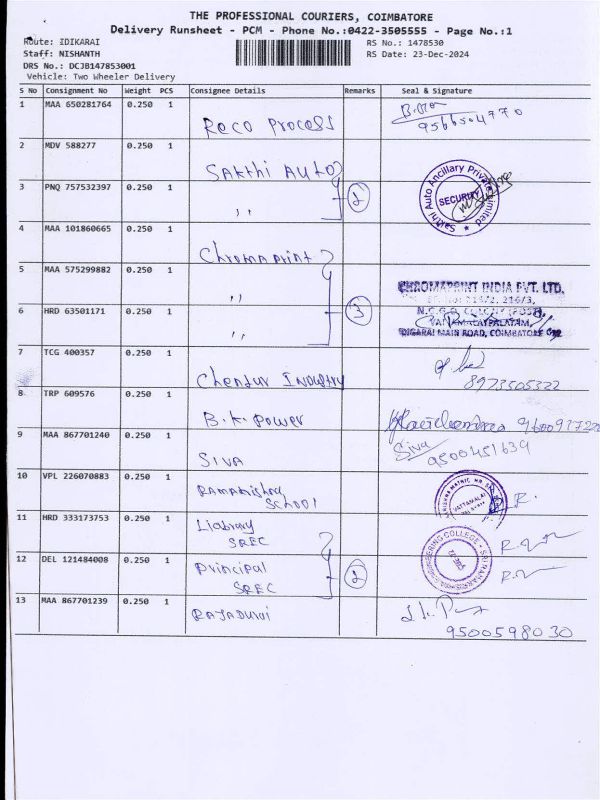 THE PROFESSIONAL COURIERS, COIMBATORE
Delivery Runsheet - PCM - Phone No.:0422-3505555 - Page No.:1
Route: IDIKARAI
RS No.: 1478530
Staff: NISHANTH
RS Date: 23-Dec-2024
DRS No.: DCJB147853001
Vehicle: Two Wheeler Delivery
S No Consignment No Weight PCS Consignee Details Remarks Seal & Signature
1 MAA 650281764 0.250 1 Reco Process
9566504770
2 MDV 588277 0.250 1 Sakthi Auto
3 PNQ 757532397 0.250 1 ,, 2
Sakthi Auto Ancillary Private Limited
SECURITY
4 MAA 101860665 0.250 1 Chromaprint
5 MAA 575299882 0.250 1 ,,
CHROMAPRINT INDIA PVT. LTD.
6 HRD 63501171 0.250 1 ,, 3
IDIGARAI MAIN ROAD, COIMBATORE
7 TCG 400357 0.250 1 Chendur Industry
8973505322
8 TRP 609576 0.250 1 B.K. Power
9 MAA 867701240 0.250 1 SIVA
Siva
9500451639
10 VPL 226070883 0.250 1 Ramakrishna
School
11 HRD 333173753 0.250 1 Library
SREC
12 DEL 121484008 0.250 1 Principal
SREC 2
13 MAA 867701239 0.250 1 Rajadurai
9500598030